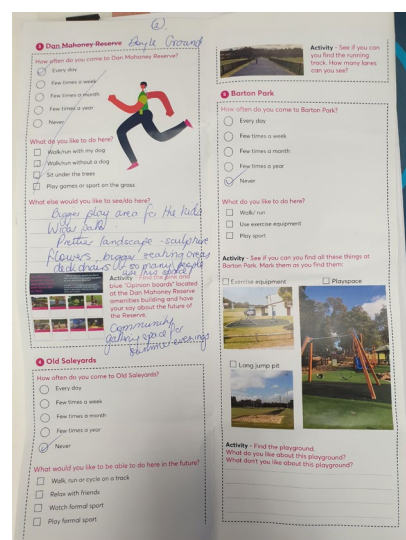 2.
3 Dan Mahoney Reserve Boyle Ground
How often do you come to Dan Mahoney Reserve?
Every day
Few times a week
Few times a month
Few times a year
Never
What do you like to do here?
Walk/run with my dog
Walk/run without a dog
Sit under the trees
Play games or sport on the grass
What else would you like to see/do here?
Bigger play area for the kids
Wider path.
Prettier landscape - sculpture
flowers, bigger seating areas
deckchairs, so many people
use this space
Activity - Find the pink and
blue "Opinion boards" located
at the Dan Mahoney Reserve
amenities building and have
your say about the future of
the Reserve.
Community
gathering space for
summer evenings
4 Old Saleyards
How often do you come to Old Saleyards?
Every day
Few times a week
Few times a month
Few times a year
Never
What would you like to be able to do here in the future?
Walk, run or cycle on a track
Relax with friends
Watch formal sport
Play formal sport
Activity - See if you can
you find the running
track. How many lanes
can you see?
5 Barton Park
How often do you come to Barton Park?
Every day
Few times a week
Few times a month
Few times a year
Never
What do you like to do here?
Walk/ run
Use exercise equipment
Play sport
Activity - See if you can find all these things at
Barton Park. Mark them as you find them:
Exercise equipment
Playspace
Long jump pit
Activity - Find the playground.
What do you like about this playground?
What don't you like about this playground?